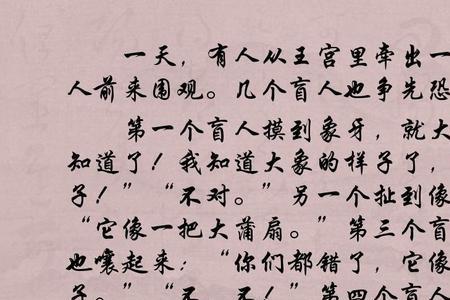 一天，有人从王宫里牵出一
人前来围观。几个盲人也争先恐
第一个盲人摸到象牙，就大
知道了！我知道大象的样子了，
子！”“不对。”另一个扯到像
“它像一把大蒲扇。”第三个盲
也嚷起来：“你们都错了，它像
子。”“不，不！”第四个盲人